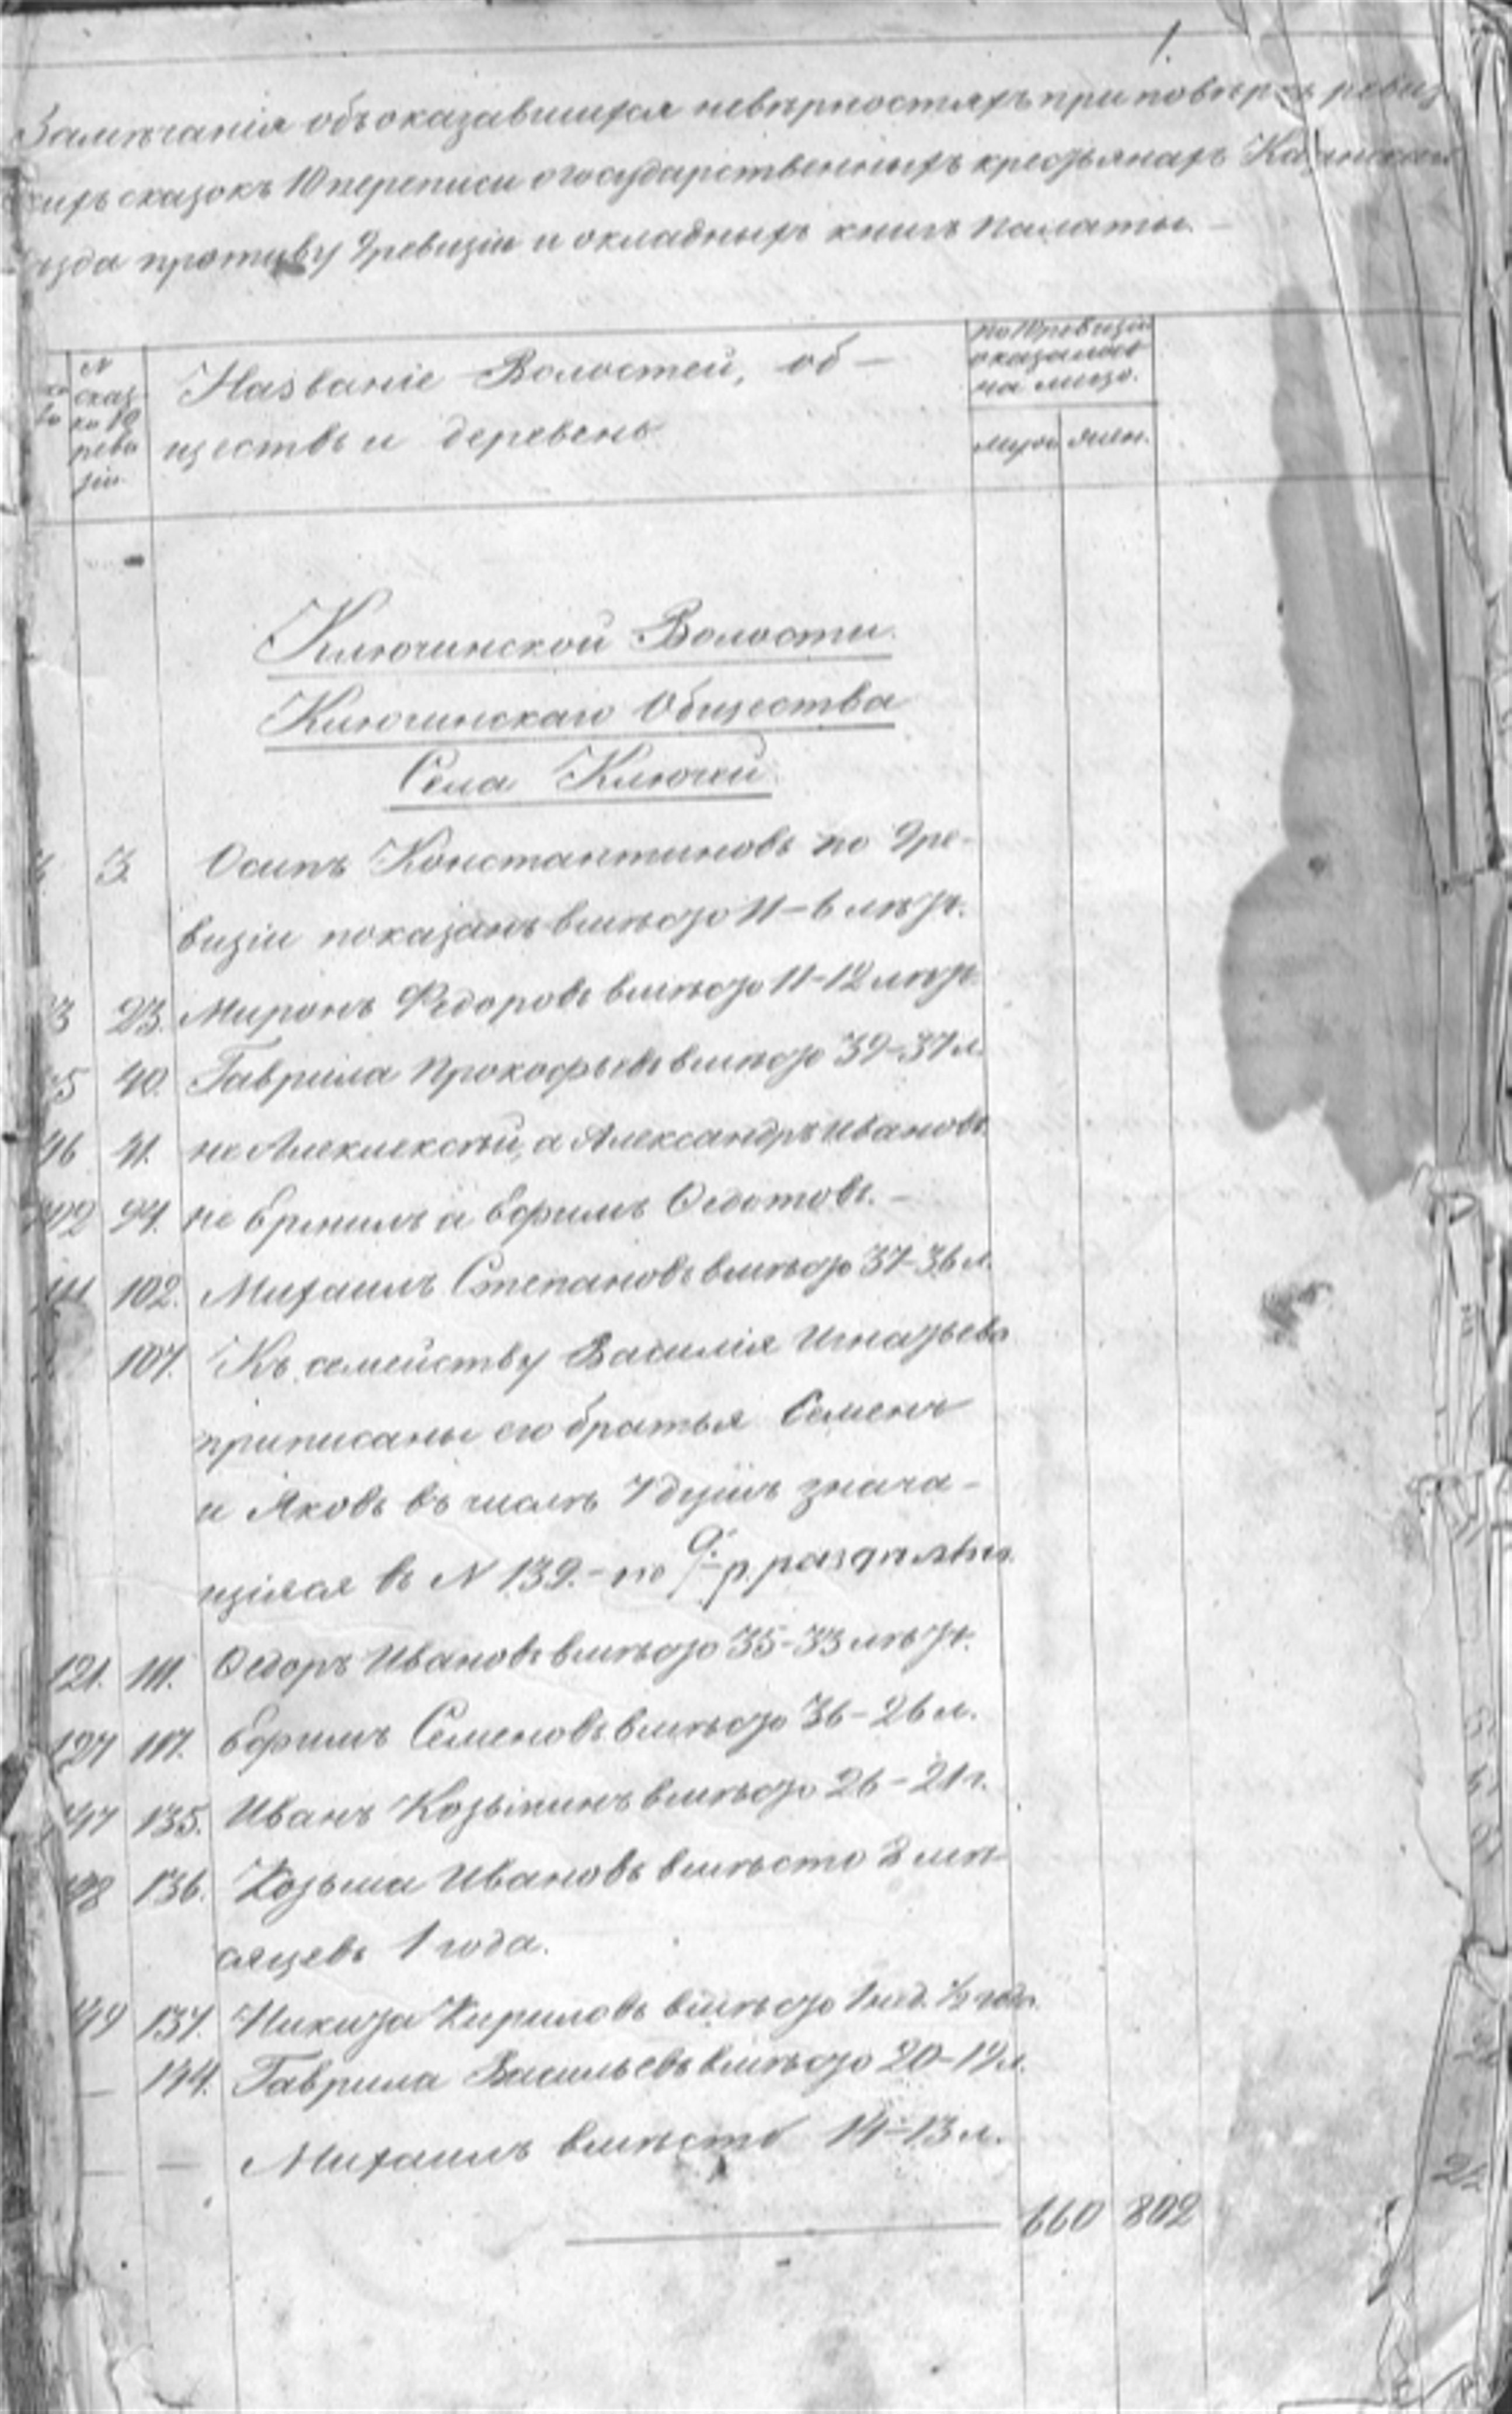 1.
Замѣчанія объ оказавшихся невѣрностяхъ при повѣркѣ ревиз
скихъ сказокъ 10 переписи о государственныхъ крестьянахъ Казанскаго
ѣзда противу 9 ревизіи и окладныхъ книгъ Палаты. –
N сказки 10 ревизіи.
Названіе Волостей, об–
ществъ и деревень
по 10 ревизіи
оказалось
на лицо.
муж. жен.
Ключинской Волости.
Ключинскаго Общества
Села Ключей.
3. Осипъ Константиновъ по 9 ре-
визіи показанъ вмѣсто 11–6 лѣтъ.
23. Миронъ Федоровъ вмѣсто 11–12 лѣтъ.
40. Гаврила Прокофьевъ вмѣсто 39–37 л.
46 41. не Алеклексѣй, а Александръ Ивановъ.
102 94. не Ермилъ а Ефимъ Ѳедотовъ. –
111 102. Михаилъ Степановъ вмѣсто 37–36 л.
107. Къ семейству Василія Игнатьева
приписаны его братья Семенъ
и Яковъ въ числѣ 7 душъ знача-
щіяся въ N 139. – по 9 р.
121. 111. Ѳедоръ Ивановъ вмѣсто 35–33 лѣтъ.
127 117. Ефимъ Семеновъ вмѣсто 36–26 л.
147 135. Иванъ Козьминъ вмѣсто 26–21 г.
148 136. Козьма Ивановъ вмѣсто 2 мѣ-
сяцевъ 1 года.
149 137. Никита Кириловъ вмѣсто 1 нед. ½ года.
– 144. Гаврила Васильевъ вмѣсто 20–19 л.
– – Михаилъ вмѣсто 14–13 л.
660 802